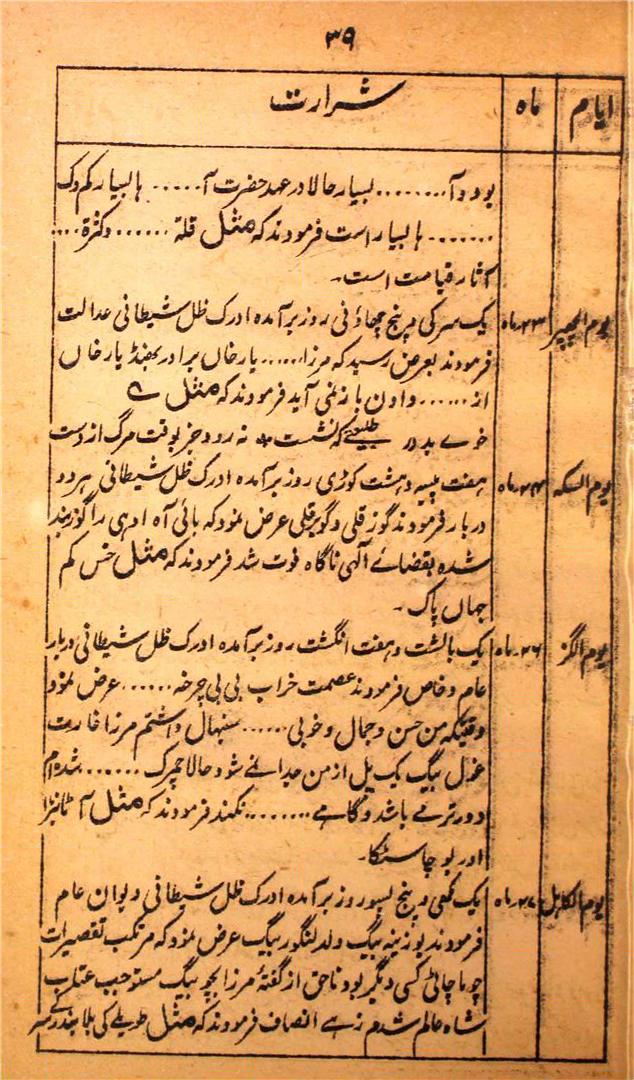 ۳۹
ایام ماہ شرارت
بود و آ........ بسیار حالا در عہد حضرت آ..... ہا بسیار کم و ک
....... ہا بسیار است فرمودند کہ مثل قلة ...... و کثرة ....
آثار قیامت است۔
۲۳ ماہ یک سرکی و پنج چھاؤنی روز برآمدہ ادرک ظل شیطانی عدالت
فرمودند بعرض رسید کہ مرزا...... یار خان برادر بھنڈ یار خان
از ...... دادن باز نمی آید فرمودند کہ مثل ے
خوے بد در طبیعتے کہ نشست * نہ رود جز بوقت مرگ از دست
یوم السکہ ۲۴ ماہ ہفت پیسہ و ہشت کوڑی روز برآمدہ ادرک ظل شیطانی ہر دو
دربار فرمودند گوز قلی و گوبر قلی عرض نمود کہ بائی آہ اوہی را گوز بند
شدہ بقضائے الٰہی ناگاہ فوت شد فرمودند کہ مثل خس کم
جہان پاک۔
یوم الگز ۲۶ ماہ یک بالشت و ہفت انگشت روز برآمدہ ادرک ظل شیطانی دربار
عام و خاص فرمودند عصمت خراب بی بی چرخہ ...... عرض نمود
وقتیکہ من حسن و جمال و خوبی ...... سنبھال داشتم مرزا غارت
غول بیگ یک پل از من جدا نمے شود حالا چمرک ...... شدہ ام
دور تر مے باشد و گاہے ........ نکند فرمودند کہ مثل آٹا نبڑا
اور بوچا سٹکا۔
۲۷ ماہ یک کھی و پنج لسور روز برآمدہ ادرک ظل شیطانی دیوان عام
فرمودند بوزینہ بیگ ولد لنگور بیگ عرض نمود کہ مرتکب تقصیرات
چوما چاٹی کسی دیگر بود ناحق از گفتۂ مرزا لچو بیگ مستوجب عتاب
شاہ عالم شدم زہے انصاف فرمودند کہ مثل طویلے کی بلا بندر کے سر